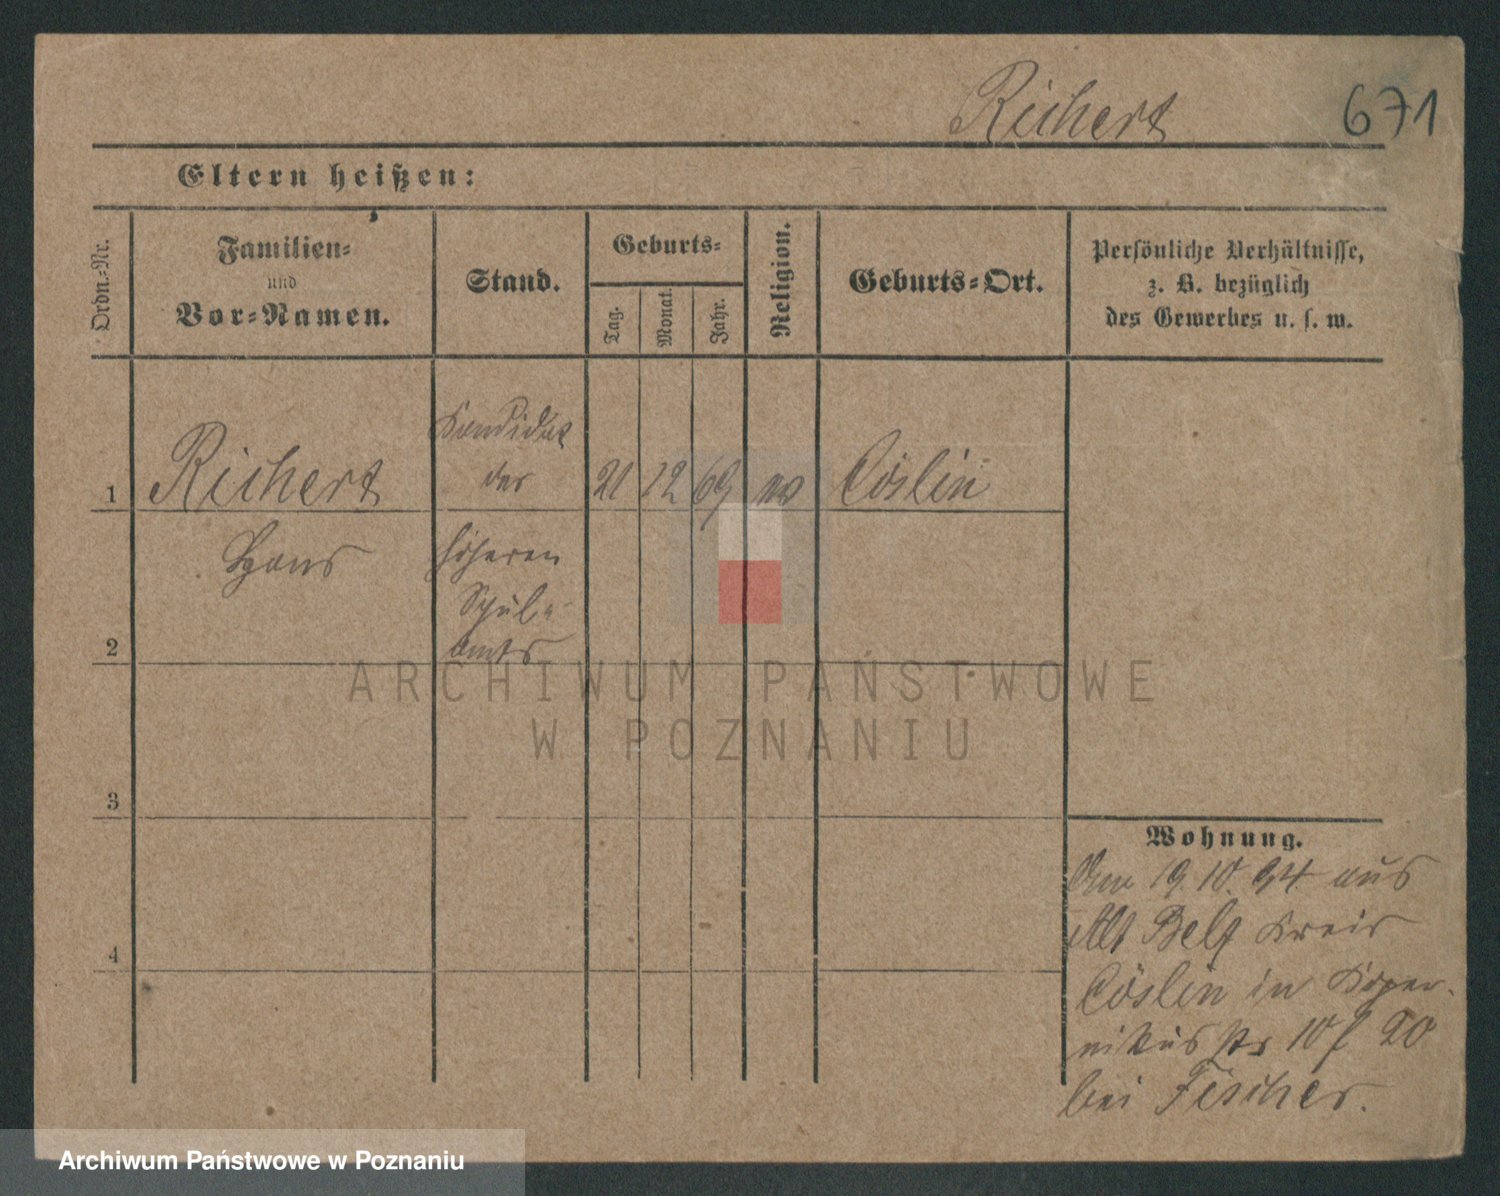 Richert 671
Eltern heißen:
Ordn.-Nr.
Familien-
und
Vor-Namen.
Stand.
Geburts-
Tag.
Monat.
Jahr.
Religion.
Geburts-Ort.
Persönliche Verhältnisse,
z. B. bezüglich
des Gewerbes u. s. w.
1 Richert
Hans
Kandidat
des
höheren
Schul-
amts
21 12 69 ev Cöslin
2
3
4
Wohnung.
Am 19. 10. 94 aus
Alt Belz Kreis
Cöslin in Koper-
nikusstr 10 20
bei Fischer.
ARCHIWUM PAŃSTWOWE
W POZNANIU
Archiwum Państwowe w Poznaniu